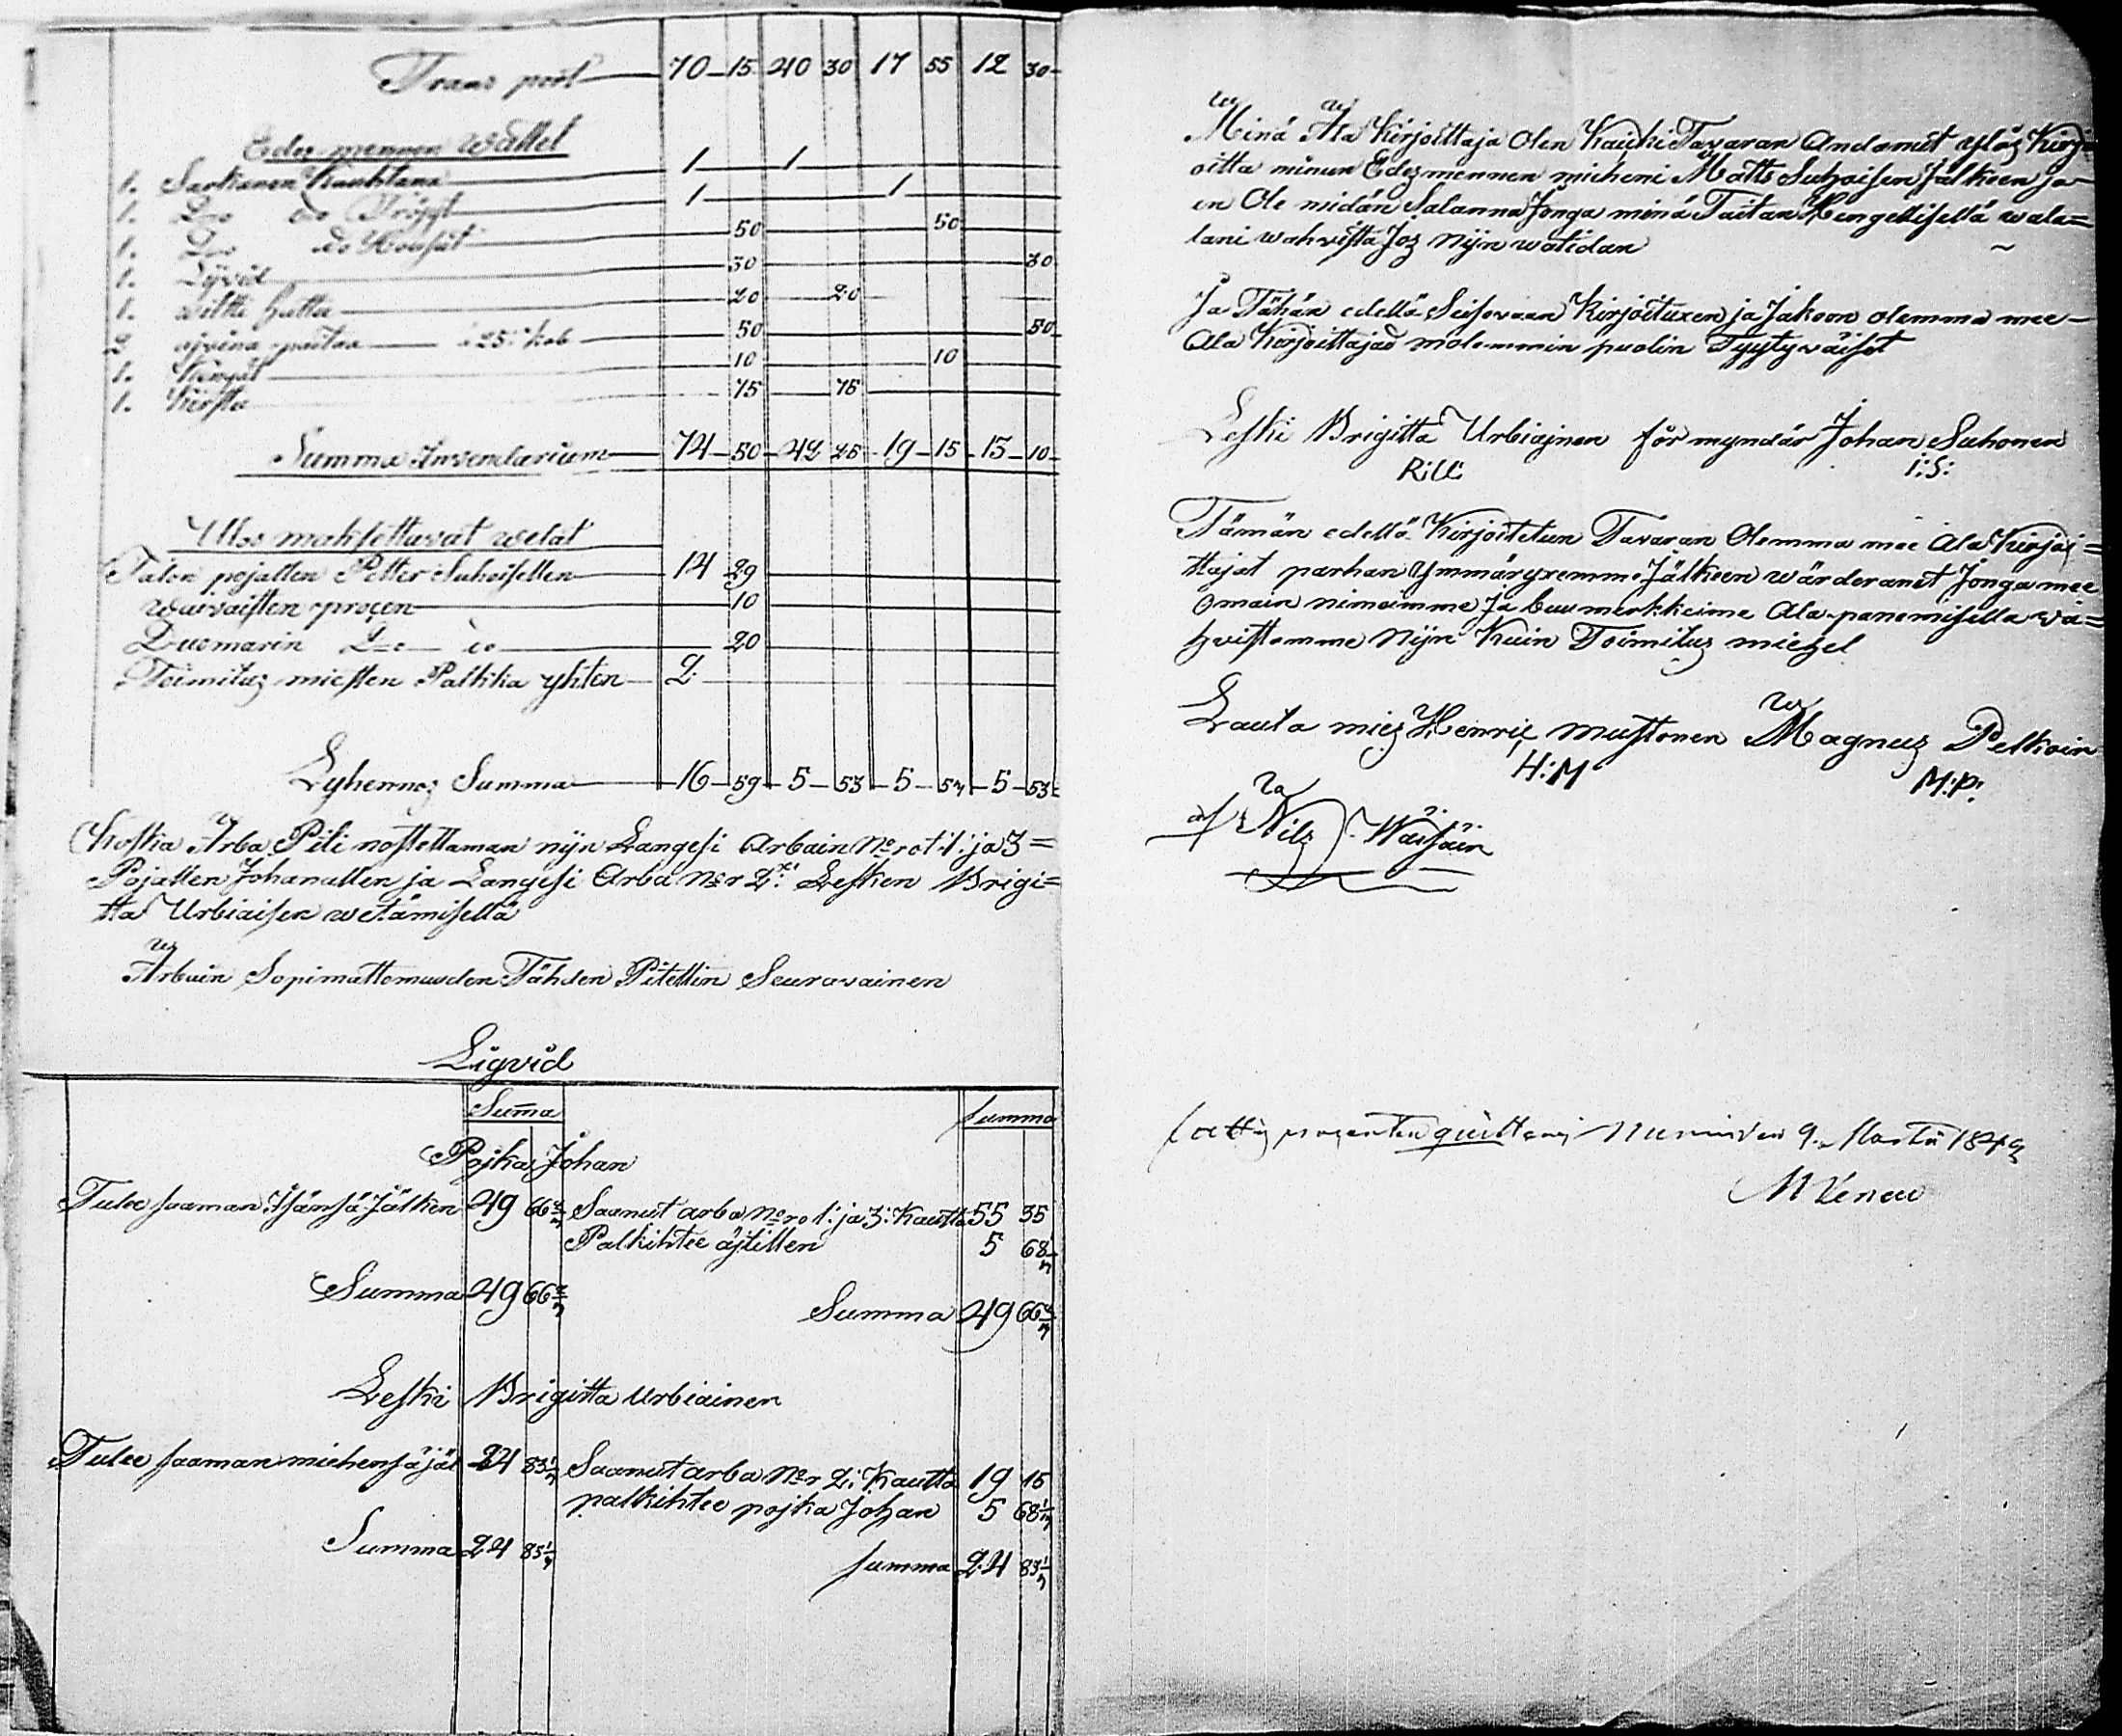 Transport 70 15 40 30 17 55 12 30
Edes mennen wattet
1. Sarkanen Kauhtana 1 1
1. Do do Tröyyt 1 1
1. Do do Housut 50 50
1. Lijvit 30 30
1. wilti hattu 20 20
2 ajvina paitaa 25: kob 50 50
1. Kengät 10 10
1. Kirstu 75 75
Summa Inventarium 74 50 42 25 19 15 13 10
Ulos maksettavat welat
Talon pojallen Petter Suhoisellen 14 29
Waivaisten procen 10
Duomarin Do do 20
Toimitus miesten Palkka yhten 2
Lyhennes Summa 16 59 5 53 5 53 5 53
Koska Arba Piti nostettaman nijn Langesi Arbain No rot 1: ja 3=
Pojallen Johanallen ja Langesi Arba Nor 2: Lesken Brigi=
tta Urbiaisen wetämisellä
Arbain Sopimattomuuden Tähden Pitettin Seuravainen
Liqvid
Summa summa
Pojka Johan
Tulee saaman Isänsä Jälken 49 66 2/3 Saanut arba No ro 1: ja 3: Kautta 55 35
Palkihtee äjtillen 5 68
Summa 49 66 2/3 Summa 49 66 2/3
Leski Brigitta Urbiainen
Tulee saaman miehensä jäl 24 83 1/3 Saanut arba Nor 2: Kautta 19 15
palkihtee pojka Johan 5 68 1/3
Summa 24 83 1/3 summa 24 83 1/3
Minä Ala Kirjoittaja Olen Kaicki Tavaran Andanut ylös Kirj=
oitta minun Edesmennen mieheni Matts Suhoisen Jälkeen ja
en Ole midän Salanna Jonga minä Taitan Hengellisellä wala=
lani wahvista Jos Nijn watidan
Ja Tähän edellä Seisovaan Kirjoituxen ja Jakoon olemma mee
Ala Kirjoittajad molemmin puolin Tyytyväiset
Leski Brigitta Urbiajnen förmyndär Johan Suhonen
B:U: I:S:
Tämän edellä Kirjoitetun Tavaran Olemma mee Ala Kirjoi=
ttajat parhan Ymmäryxemme Jälkeen wärderanet Jonga mee
Omain nimeimme Ja buumerkkeime Ala panemisella wa=
hvistamme Nijn Kuin Toimitus miehet
Lauta mies Henric Mustonen Magnus Pelkoin
H:M M:P:
af Nils Wäisäin
fattig procenten quitteras Nurmis den 9. Martii 1849